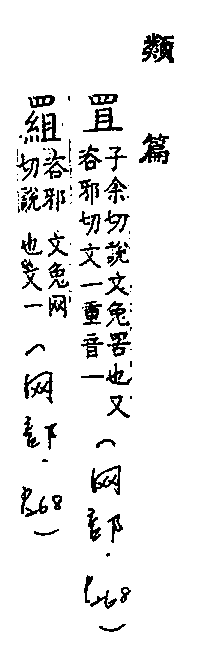 類篇
罝
子余切說文兔罟也又
咨邪切文一重音一
(网部.P.268)
咨邪
切說
文兔网
也文一
(网部.P.268)